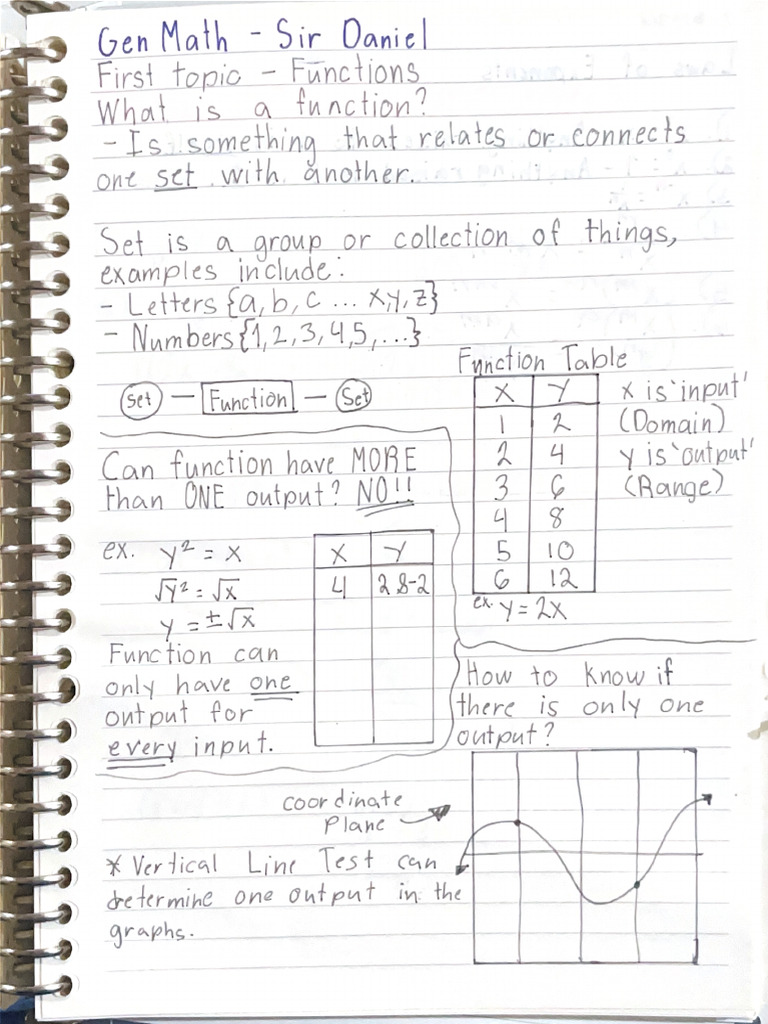 Gen Math - Sir Daniel
First topic - Functions
What is a function?
- Is something that relates or connects
one set with another.
Set is a group or collection of things,
examples include:
- Letters {a, b, c ... x,y, z}
- Numbers {1, 2, 3, 4, 5, ...}
Set — Function — Set
Function Table
X Y
1 2
2 4
3 6
4 8
5 10
6 12
ex. y = 2x
x is 'input'
(Domain)
y is 'output'
(Range)
Can function have MORE
than ONE output? NO!!
ex. y² = x
√y² = √x
y = ±√x
X Y
4 2 & -2
Function can
only have one
output for
every input.
How to know if
there is only one
output?
coordinate
Plane
* Vertical Line Test can
determine one output in the
graphs.